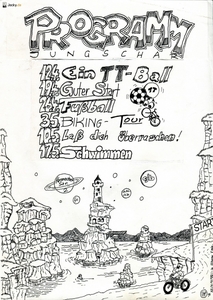 PROGRAMM
JUNGSCHAR
12.4. Ein TT-Ball
19.4. Guter Start
26.4. Fußball
3.5. BIKING-Tour
10.5. Laß dich überraschen!
17.5. Schwimmen
START